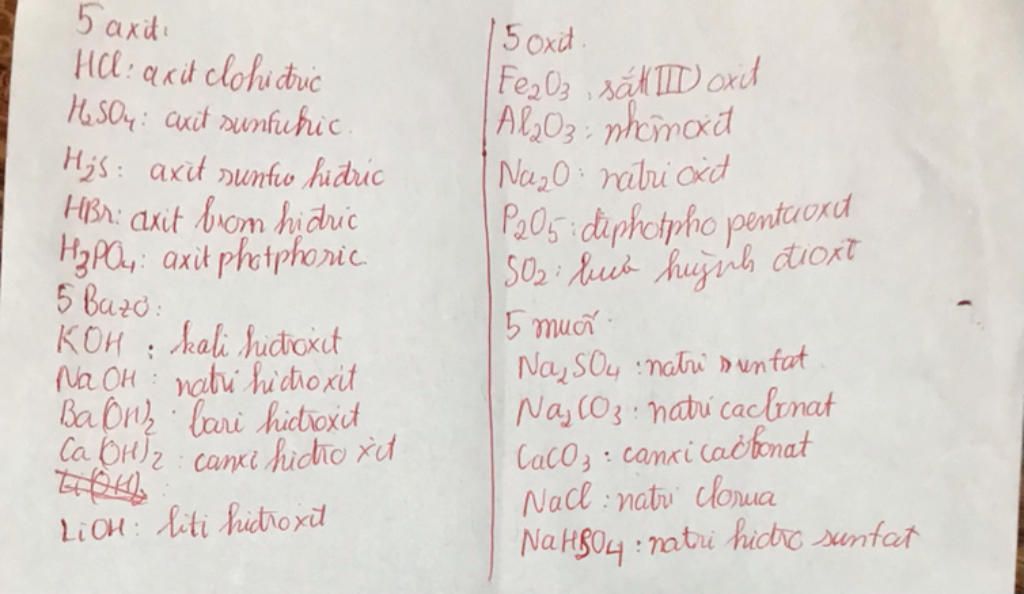 5 axit:
HCl: axit clohiđric
H₂SO₄: axit sunfuhric
H₂S: axit sunfuo hiđric
HBr: axit brom hiđric
H₃PO₄: axit photphoric
5 Bazơ:
KOH : kali hiđroxit
NaOH : natri hiđroxit
Ba(OH)₂ : bari hiđroxit
Ca(OH)₂ : canxi hiđro xit
LiOH : liti hiđroxit
5 oxit.
Fe₂O₃ : sắt(III) oxit
Al₂O₃ : nhôm oxit
Na₂O : natri oxit
P₂O₅ : điphotpho pentaoxit
SO₂ : lưu huỳnh đioxit
5 muối :
Na₂SO₄ : natri sunfat
Na₂CO₃ : natri cacbonat
CaCO₃ : canxi cacbonat
NaCl : natri clorua
NaHSO₄ : natri hiđro sunfat